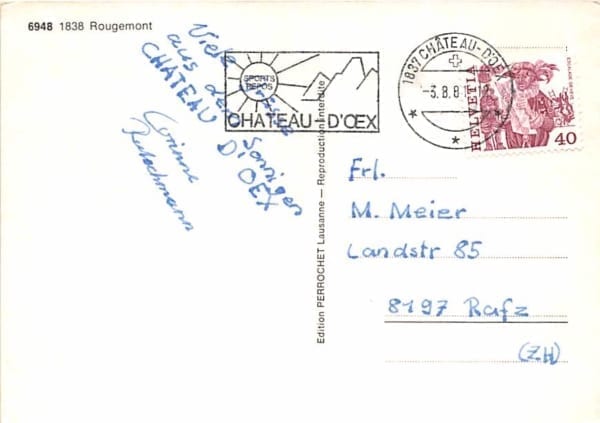 6948 1838 Rougemont
Viele Grüsse
aus dem sonnigen
CHÂTEAU D'OEX
Corinne
SPORTS
REPOS
CHATEAU-D'ŒX
1837 CHÂTEAU-D'OEX
-3.8.8
HELVETIA
40
Edition PERROCHET Lausanne — Reproduction interdite
Frl.
M. Meier
Landstr 85
8197 Rafz
(ZH)